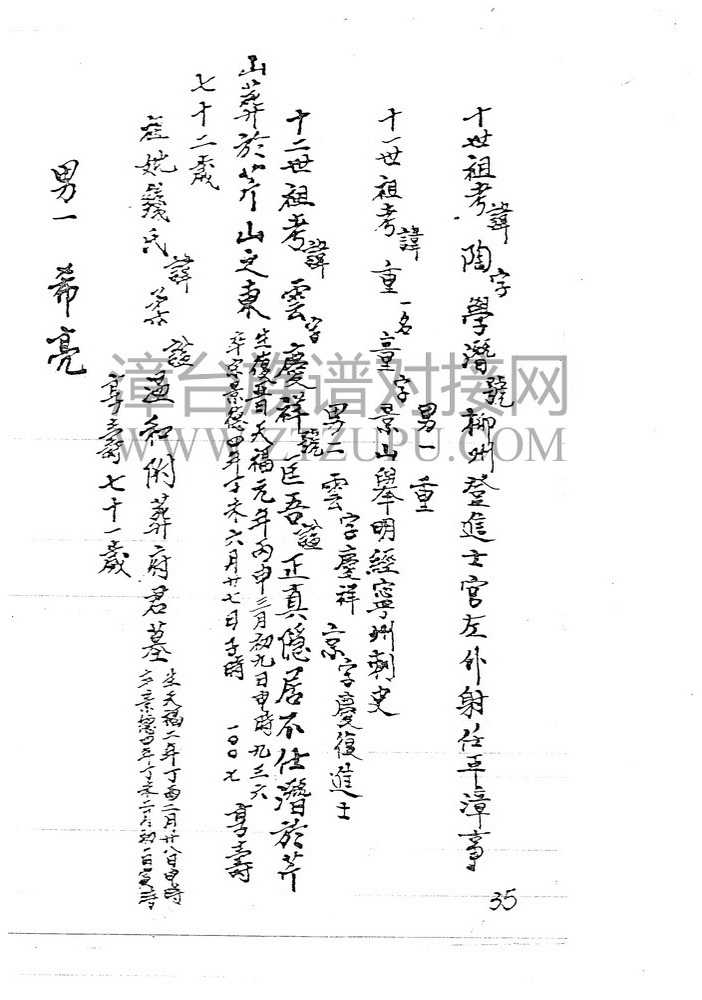 十世祖考諱陶字學潛號柳州登進士官左外射任平漳事
男一重
十一世祖考諱重一名童字景山舉明經寧州刺史
男二雲字慶祥 京字慶復進士
十二世祖考諱雲字慶祥號匡吾諡正真隱居不仕潛於芹
山葬於芹山之東
生後晉天福元年丙申三月初九日申時九三六
卒宋景德四年丁未六月廿七日子時 一00七
享壽
七十二歲
祖妣氏諱諡溫和附葬府君墓
生天福二年丁酉二月廿八日申時
卒景德四年丁未二月初一日寅時
享壽七十一歲
男一 希亮
35
漳台族谱对接网
WWW.ZTZUPU.COM